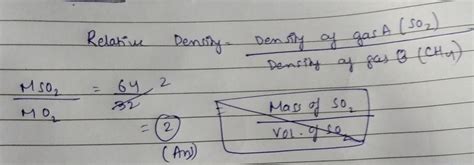 Relative Density = Density of gas A (SO2)
Density of gas B (CH4)
MSO2 = 64 2
MO2 32
= 2
(Ans)
Mass of SO2
Vol. of SO2